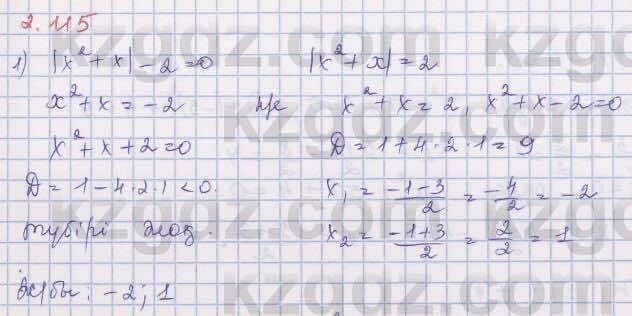 2.115
1) |x² + x| - 2 = 0    |x² + x| = 2
x² + x = -2    не    x² + x = 2, x² + x - 2 = 0
x² + x + 2 = 0    D = 1 + 4 · 2 · 1 = 9
D = 1 - 4 · 2 · 1 < 0.    x₁ = (-1-3)/2 = -4/2 = -2
түбірі жоқ.    x₂ = (-1+3)/2 = 2/2 = 1
Ж/бы: -2; 1
kzgdz.com